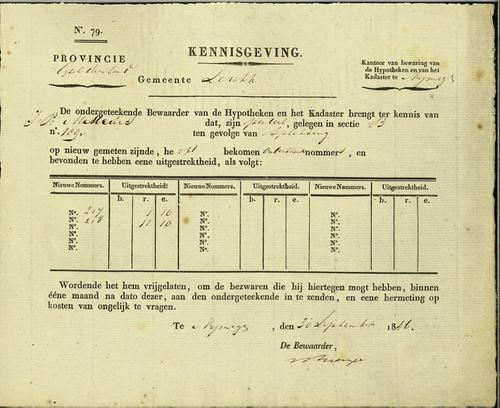 N°. 79.
PROVINCIE
Gelderland
KENNISGEVING.
Gemeente
Kantoor van bewaring van
de Hypotheken en van het
Kadaster te Nijmegen
De ondergeteekende Bewaarder van de Hypotheken en het Kadaster brengt ter kennis van
dat, zijn perceel, gelegen in sectie B
n°. 109, ten gevolge van splitsing
op nieuw gemeten zijnde, heeft bekomen nommers, en
bevonden te hebben eene uitgestrektheid, als volgt:
Nieuwe Nommers. Uitgestrektheid! Nieuwe Nommers. Uitgestrektheid. Nieuwe Nommers. Uitgestrektheid.
b. r. e. b. r. e. b. r. e.
N°. 217 1 10 N°. N°.
N°. 218 11 10 N°. N°.
N°. N°. N°.
N°. N°. N°.
N°. N°. N°.
Wordende het hem vrijgelaten, om de bezwaren die hij hiertegen mogt hebben, binnen
ééne maand na dato dezer, aan den ondergeteekende in te zenden, en eene hermeting op
kosten van ongelijk te vragen.
Te Nijmegen, den 30 September 1846.
De Bewaarder,